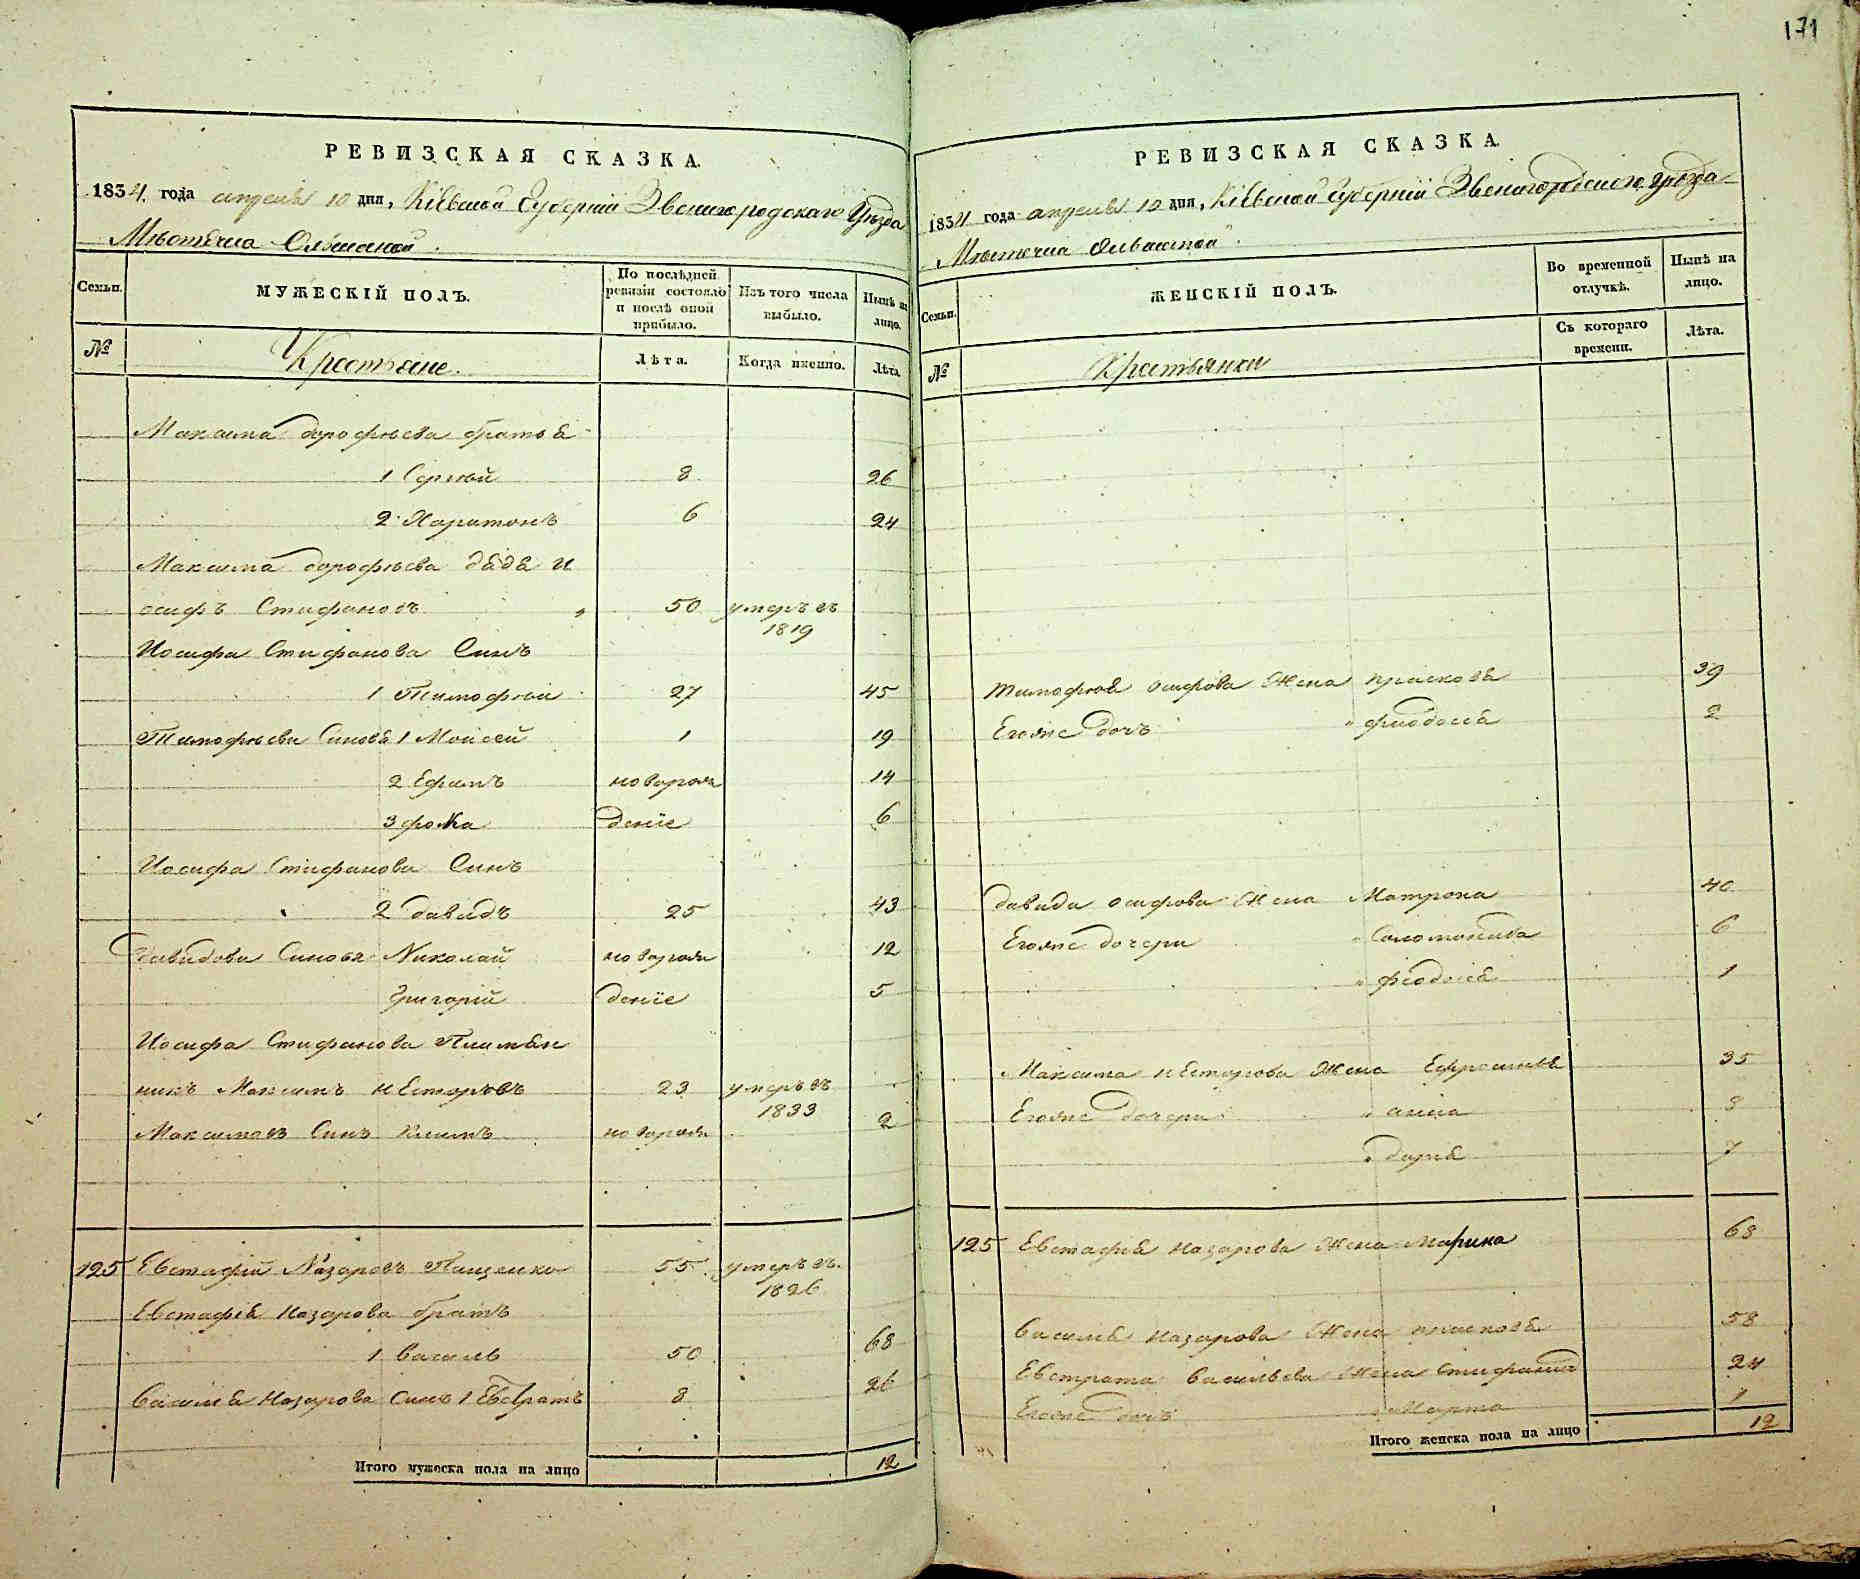 171
РЕВИЗСКАЯ СКАЗКА.
1834 года апреля 10 дня, Кіевской Губерніи Звенигородскаго Уезда
Местечка Ольшаной.
Семьи. МУЖЕСКІЙ ПОЛЪ. По послѣдней ревизіи состояло и послѣ оной прибыло. Изъ того числа выбыло. Нынѣ на лицо.
№ Крестьяне. Лѣта. Когда именно. Лѣта.
Максима дорофѣева братья
1 Сергѣй 8 26
2 Харитонъ 6 24
Максима дорофѣева дядя И
осифъ Стифановъ 50 умеръ въ 1819
Иосифа Стифанова Синъ
1 Тимофѣй 27 45
Тимофѣеви Синовя 1 Моисей 1 19
2 Ефимъ новорож 14
3 фома деніе 6
Иосифа Стифанова Синъ
2 давидъ 25 43
Давидови Синовя Николай новорож 12
Григорій деніе 5
Иосифа Стифанова Плимян
никъ Максимъ нЕсторовъ 23 умеръ въ 1833
Максимовъ Синъ Климъ новорож 2
125 Евстафій Назаровъ Пащенко 55 умеръ въ 1826
Евстафія Назарова братъ
1 василь 50 68
василя Назарова Синъ 1 Евстратъ 8 26
Итого мужеска пола на лицо 12
РЕВИЗСКАЯ СКАЗКА.
1834 года апреля 10 дня, Кіевской Губерніи Звенигородскаго Уезда
Местечка Ольшаной.
Семьи. ЖЕНСКІЙ ПОЛЪ. Во временной отлучкѣ. Нынѣ на лицо.
№ Крестьянки Съ котораго времени. Лѣта.
Тимофѣя осифова Жена прасковя 39
Егожъ дочъ " фиодосія 2
давида осифова Жена Матрона 40
Егоже дочери " Соломонида 6
" фіодосія 1
Максима нЕсторова Жена Ефросинія 35
Егоже дочери " анна 8
" дарія 7
125 Евстафія назарова Жена Марина 68
василя назарова Жена прасковя 58
Евстрата васильева Жена Стифанида 24
Егоже дочъ " Марта 1
Итого женска пола на лицо 12